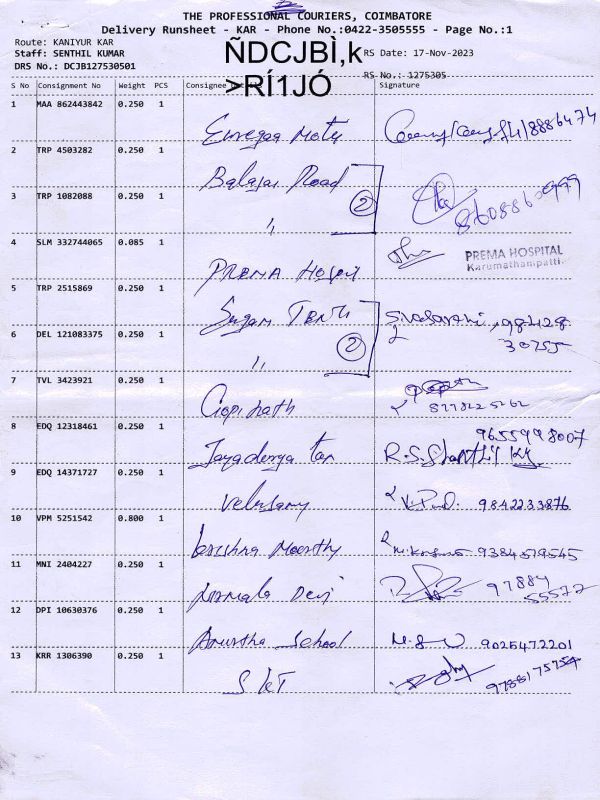 THE PROFESSIONAL COURIERS, COIMBATORE
Delivery Runsheet - KAR - Phone No.:0422-3505555 - Page No.:1
Route: KANIYUR KAR
Staff: SENTHIL KUMAR ÑDCJBÌ,k RS Date: 17-Nov-2023
DRS No.: DCJB127530501 >RÍ1JÓ RS No.: 1275305
S No Consignment No Weight PCS Consignee Signature
1 MAA 862443842 0.250 1 8886474
2 TRP 4503282 0.250 1 Balagar Road
3 TRP 1082088 0.250 1 ,, 2
4 SLM 332744065 0.085 1 PREMA PREMA HOSPITAL
Karumathampatti.
5 TRP 2515869 0.250 1 Sugam
6 DEL 121083375 0.250 1 ,, 2 30755
7 TVL 3423921 0.250 1 Gopinath
8 EDQ 12318461 0.250 1 Jayadurga Tex R.S. 9655998007
9 EDQ 14371727 0.250 1 Velusamy 9842233876
10 VPM 5251542 0.800 1 Krishna Moorthy 9384579545
11 MNI 2404227 0.250 1 Nirmala Devi 97884
55572
12 DPI 10630376 0.250 1 School 9025472201
13 KRR 1306390 0.250 1 SKT